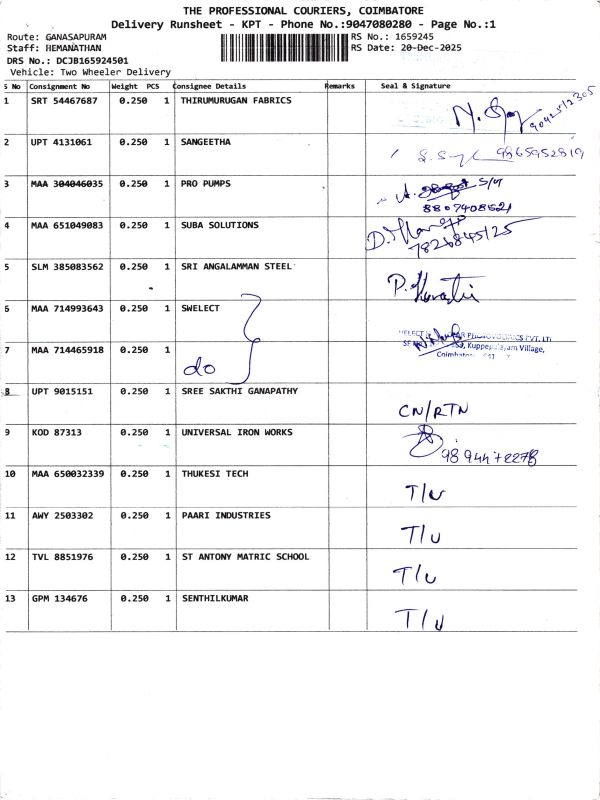 THE PROFESSIONAL COURIERS, COIMBATORE
Delivery Runsheet - KPT - Phone No.:9047080280 - Page No.:1
Route: GANASAPURAM RS No.: 1659245
Staff: HEMANATHAN RS Date: 20-Dec-2025
DRS No.: DCJB165924501
Vehicle: Two Wheeler Delivery
S No Consignment No Weight PCS Consignee Details Remarks Seal & Signature
1 SRT 54467687 0.250 1 THIRUMURUGAN FABRICS
2 UPT 4131061 0.250 1 SANGEETHA 9865952819
3 MAA 304046035 0.250 1 PRO PUMPS
8807408521
4 MAA 651049083 0.250 1 SUBA SOLUTIONS
7826845125
5 SLM 385083562 0.250 1 SRI ANGALAMMAN STEEL
6 MAA 714993643 0.250 1 SWELECT
7 MAA 714465918 0.250 1 do
PHOTOVOLTAICS PVT. LTD
Village,
8 UPT 9015151 0.250 1 SREE SAKTHI GANAPATHY CN/RTN
9 KOD 87313 0.250 1 UNIVERSAL IRON WORKS
10 MAA 650032339 0.250 1 THUKESI TECH T/U
11 AWY 2503302 0.250 1 PAARI INDUSTRIES T/U
12 TVL 8851976 0.250 1 ST ANTONY MATRIC SCHOOL T/U
13 GPM 134676 0.250 1 SENTHILKUMAR T/U